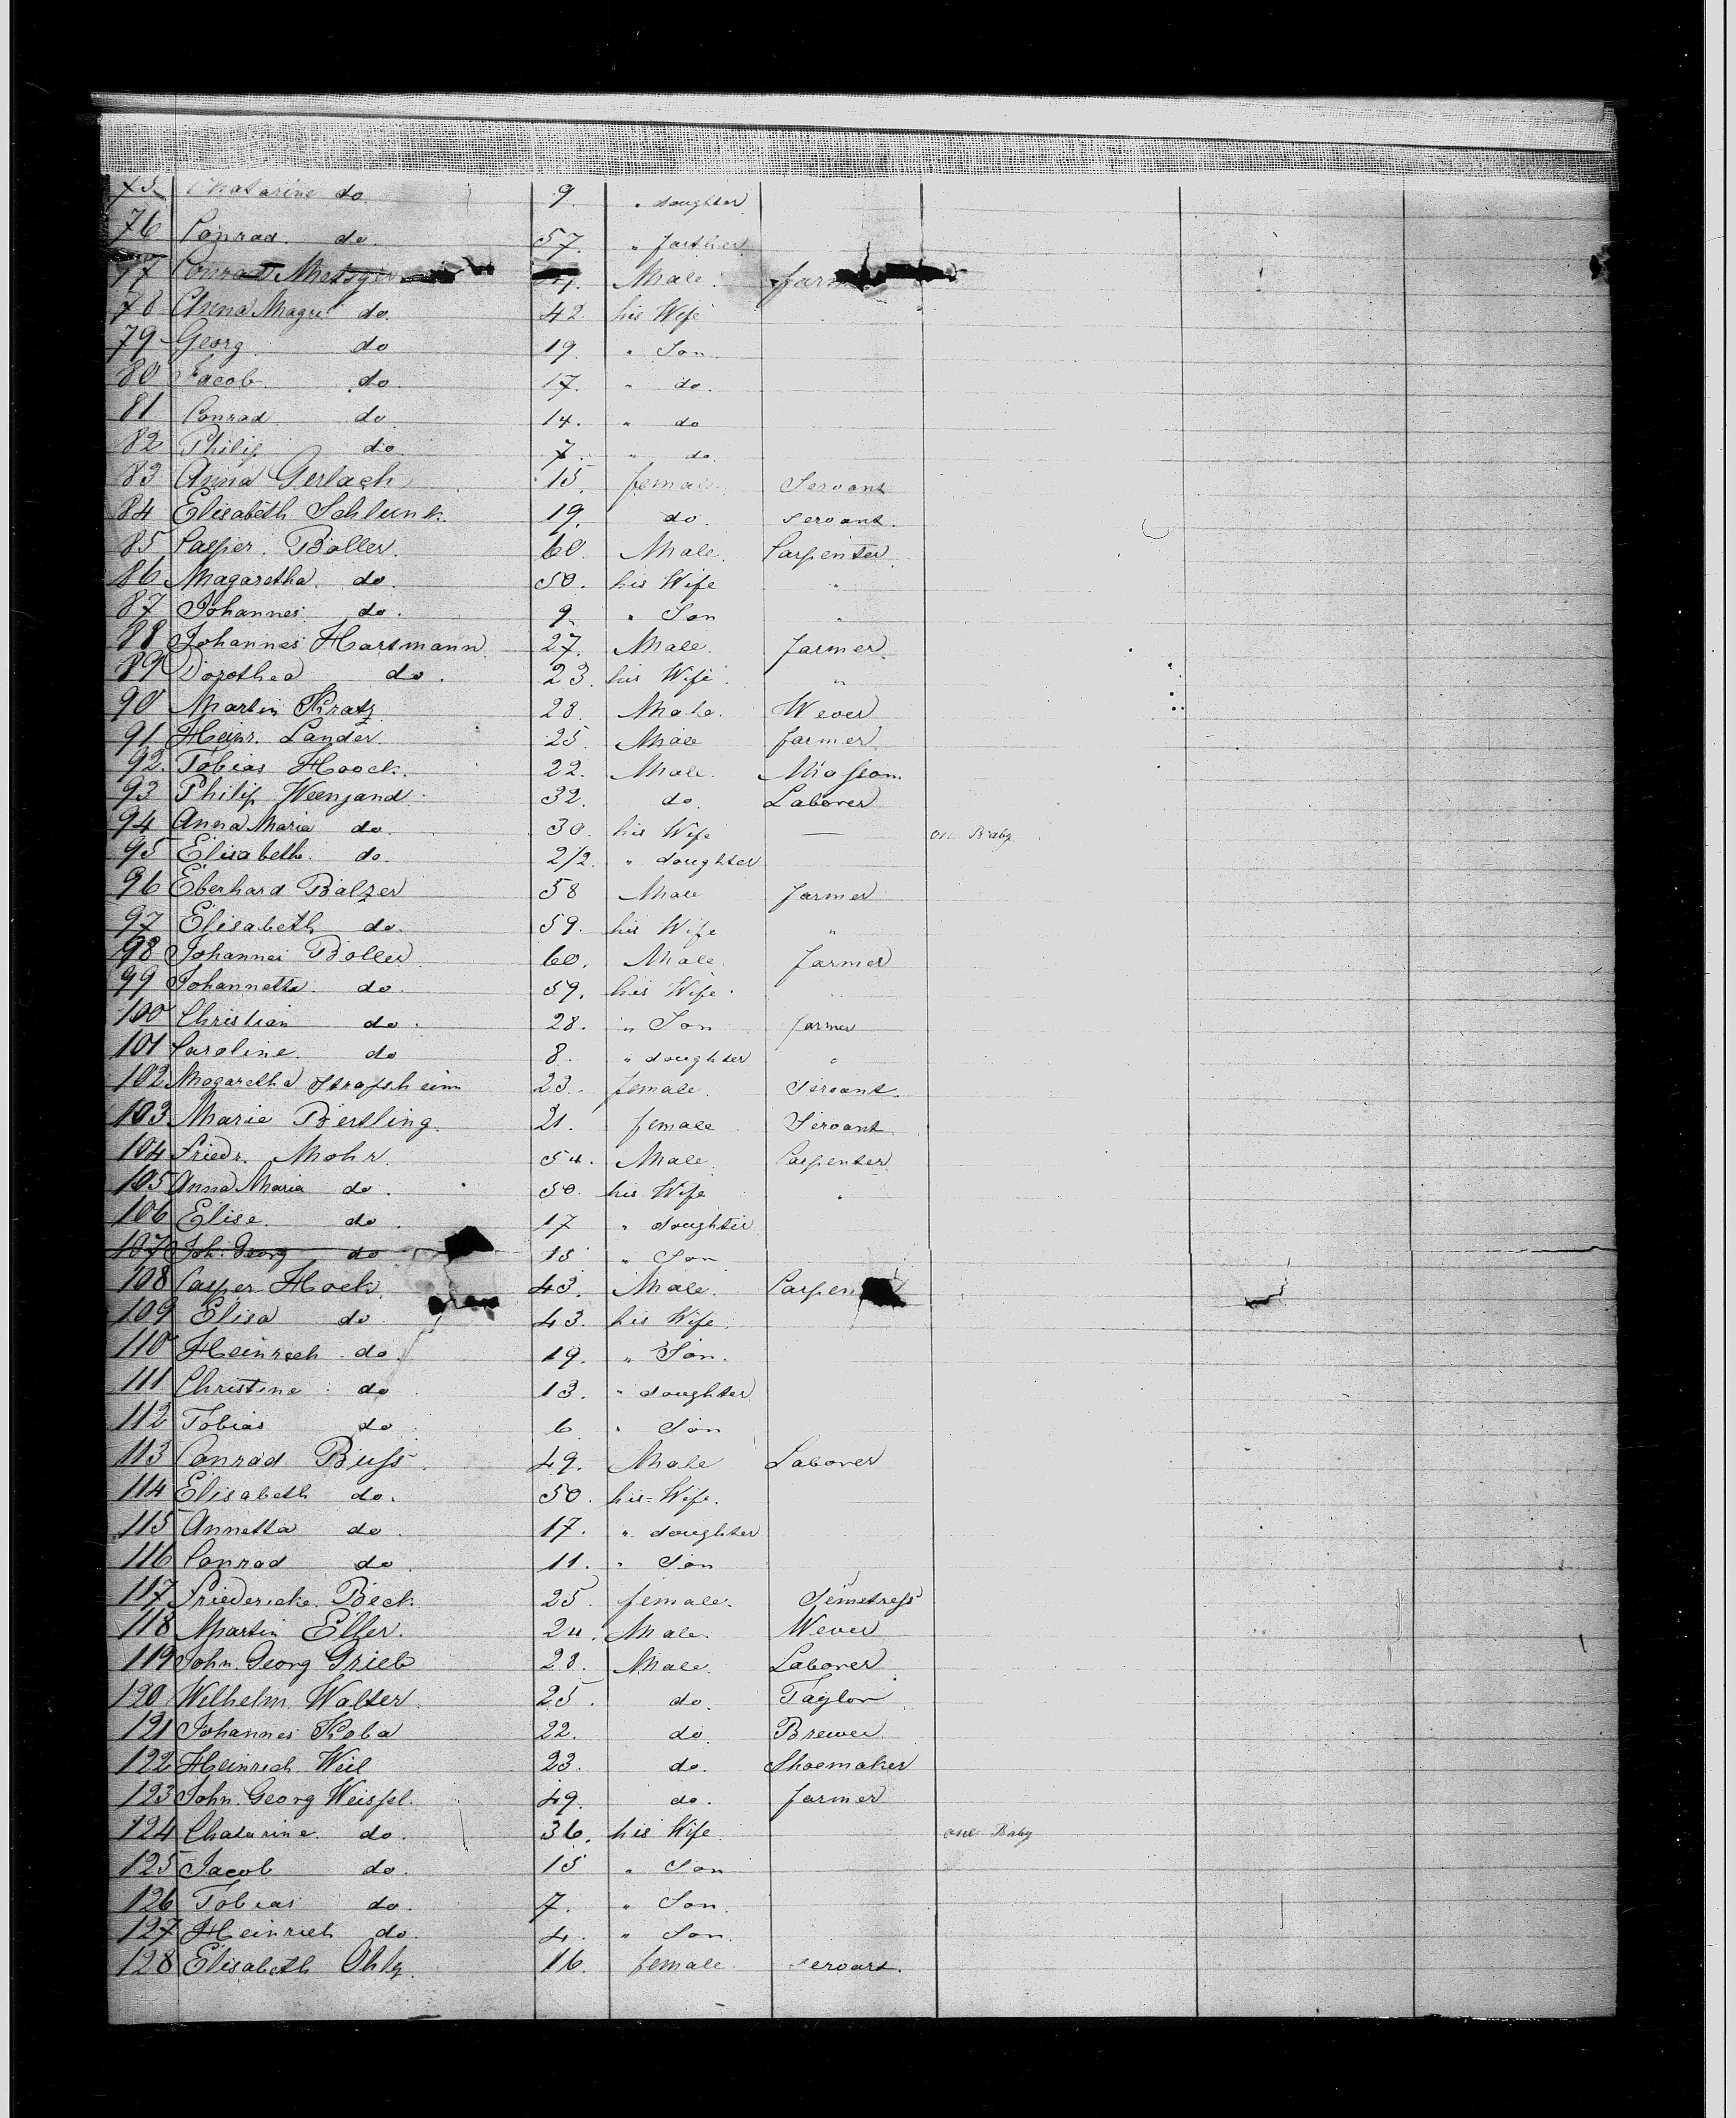 75 Chatarine do. 9. " doughter
76 Conrad. do. 57. " farther
77 Conrad Metzger Male. farm
78 Anna Magr. do. 42 his Wife
79 Georg do 19. " Son.
80 Jacob. do. 17. " do.
81 Conrad. do. 14. " do
82 Philip do. 7. " do.
83 Anna Gerlach 15. female Servant
84 Elisabeth Schlunk. 19. do. servant.
85 Casper. Boller. 60. Male. Carpenter
86 Magaretha. do. 50. his Wife "
87 Johannes. do. 9. " Son "
88 Johannes Hartmann 27. Male. farmer
89 Dorothea do. 23. his Wife. "
90 Martin Kratz 28. Male. Wever
91 Heinr. Lander. 25. Male farmer
92. Tobias Hoock. 22. Male. Masson.
93 Philip Weenzand. 32. do. Laborer
94 Anna Maria do. 30. his Wife — one Baby.
95 Elisabeth. do. 2/2. " doughter
96 Eberhard Balzer 58 Male farmer
97 Elisabeth do. 59. his Wife "
98 Johannes Boller 60. Male. farmer
99 Johannetta. do. 59. his Wife.
100 Christian do. 28. " Son farmer
101 Caroline. do 8. " doughter "
102 Magaretha Strassheim 23. female. Servant.
103 Marie Bertling. 21. female Servant
104 Friedr. Mohr. 54. Male. Carpenter
105 Anna Maria do. 50. his Wife "
106 Elise. do. 17 " doughter
107 Joh. Georg do 15 " Son
108 Casper Hock. 43. Male. Carpen
109 Elisa do 43. his Wife.
110 Heinrich do. 19. " Son.
111 Christine do 13. " doughter
112 Tobias do 6. " Son
113 Conrad Buss 49. Male Laborer
114 Elisabeth do. 50. his-Wife.
115 Annetta do. 17. " doughter
116 Conrad do. 11. " Son
117 Friedericke. Beck 25. female. Semstress
118 Martin Eller. 24. Male. Wever
119 John. Georg Grieb 28. Male. Laborer
120 Wilhelm. Walter. 25. do. Taylor
121 Johannes Koba 22. do. Brewer
122 Heinrich Weil 23. do. Shoemaker
123 John. Georg Weissel. 49. do. farmer
124 Chatarine. do. 36. his Wife. one Baby
125 Jacob do. 15 " Son
126 Tobias do. 7. " Son.
127 Heinrich do. 4. " Son.
128 Elisabeth Ohly. 16. female. servant.